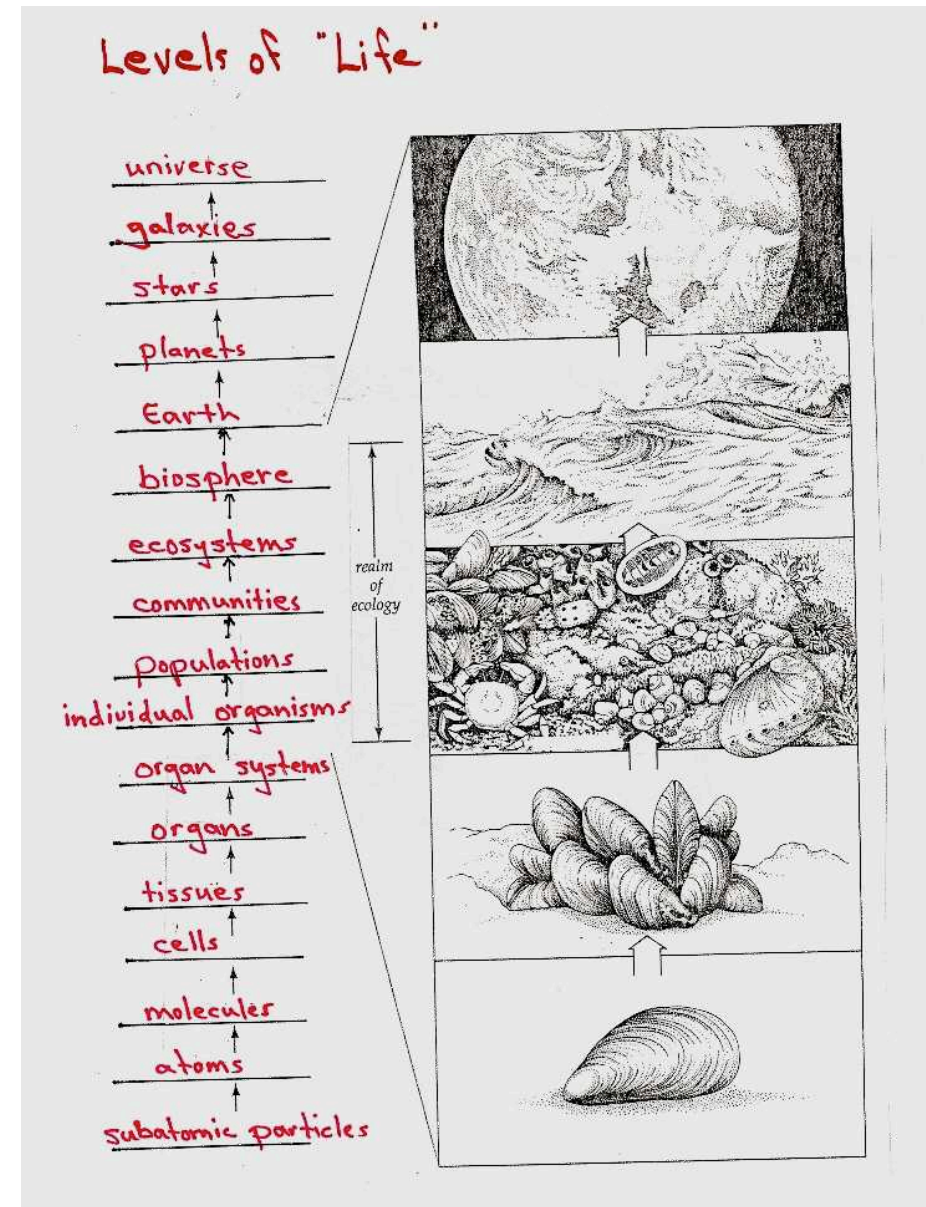 Levels of "Life"
universe
galaxies
stars
planets
Earth
biosphere
ecosystems
realm
of
ecology
communities
populations
individual organisms
organ systems
organs
tissues
cells
molecules
atoms
subatomic particles